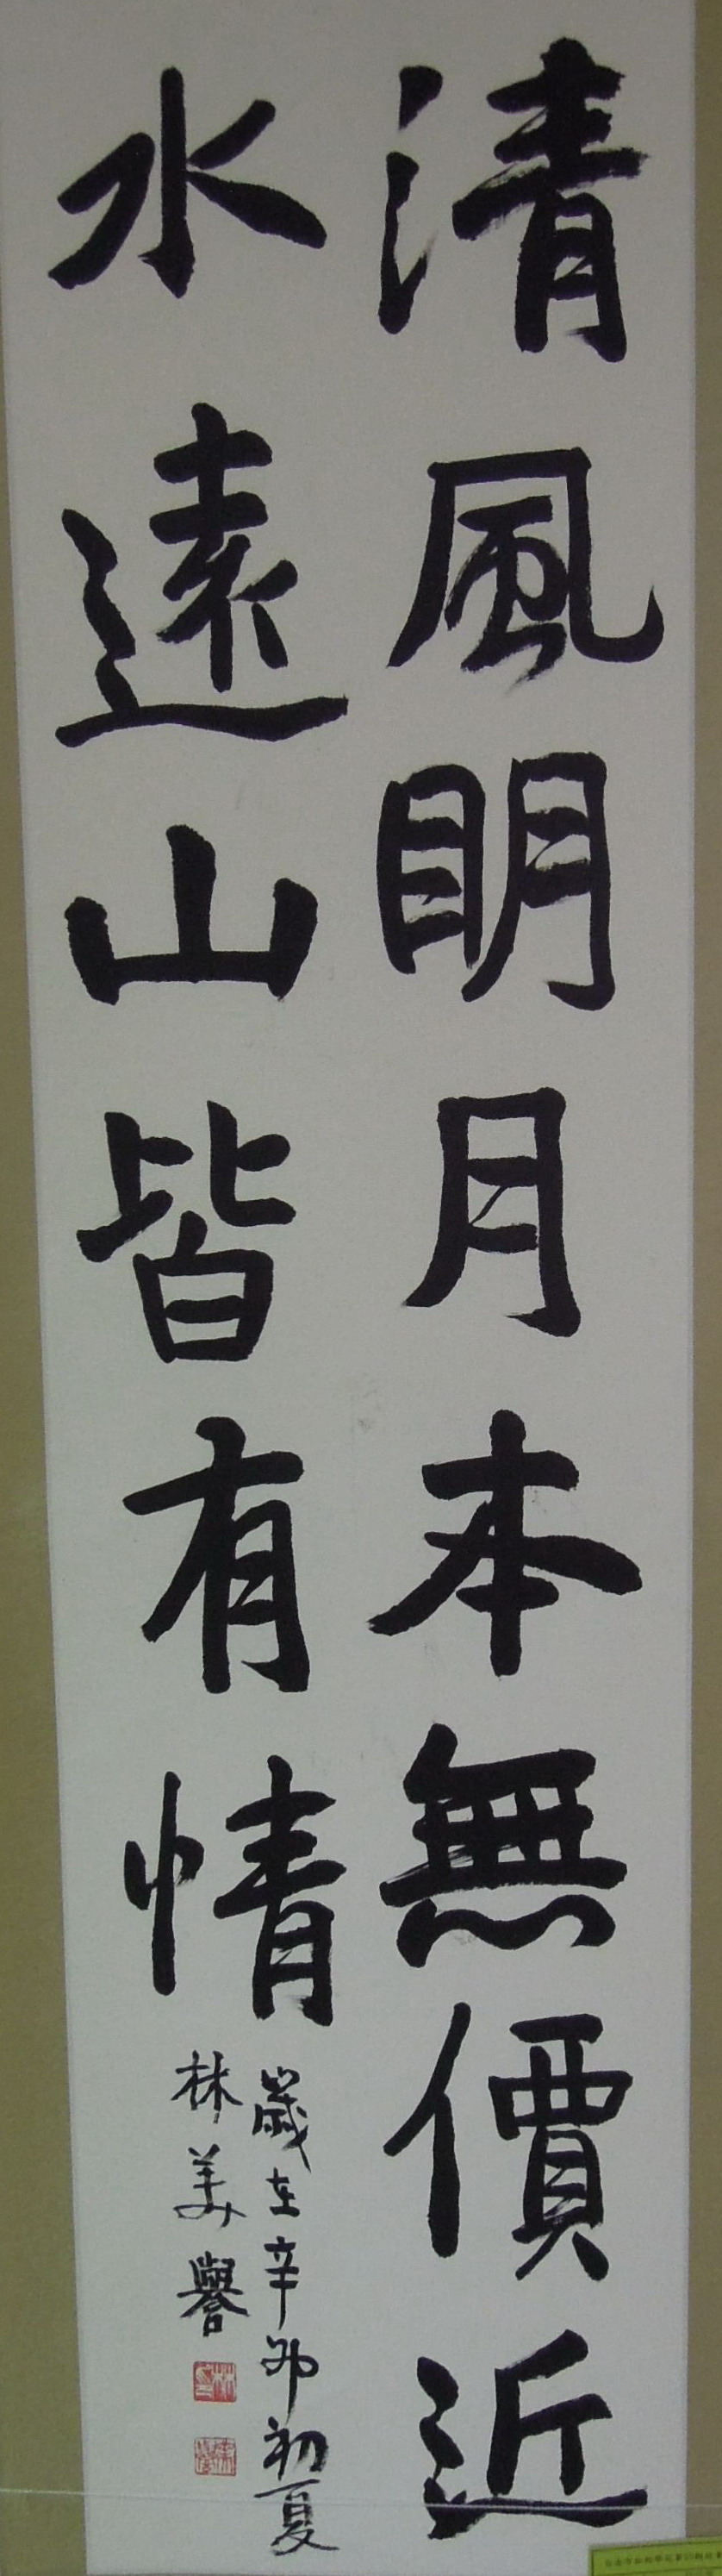 清風明月本無價近
水遠山皆有情
歲在辛卯初夏
林美譽